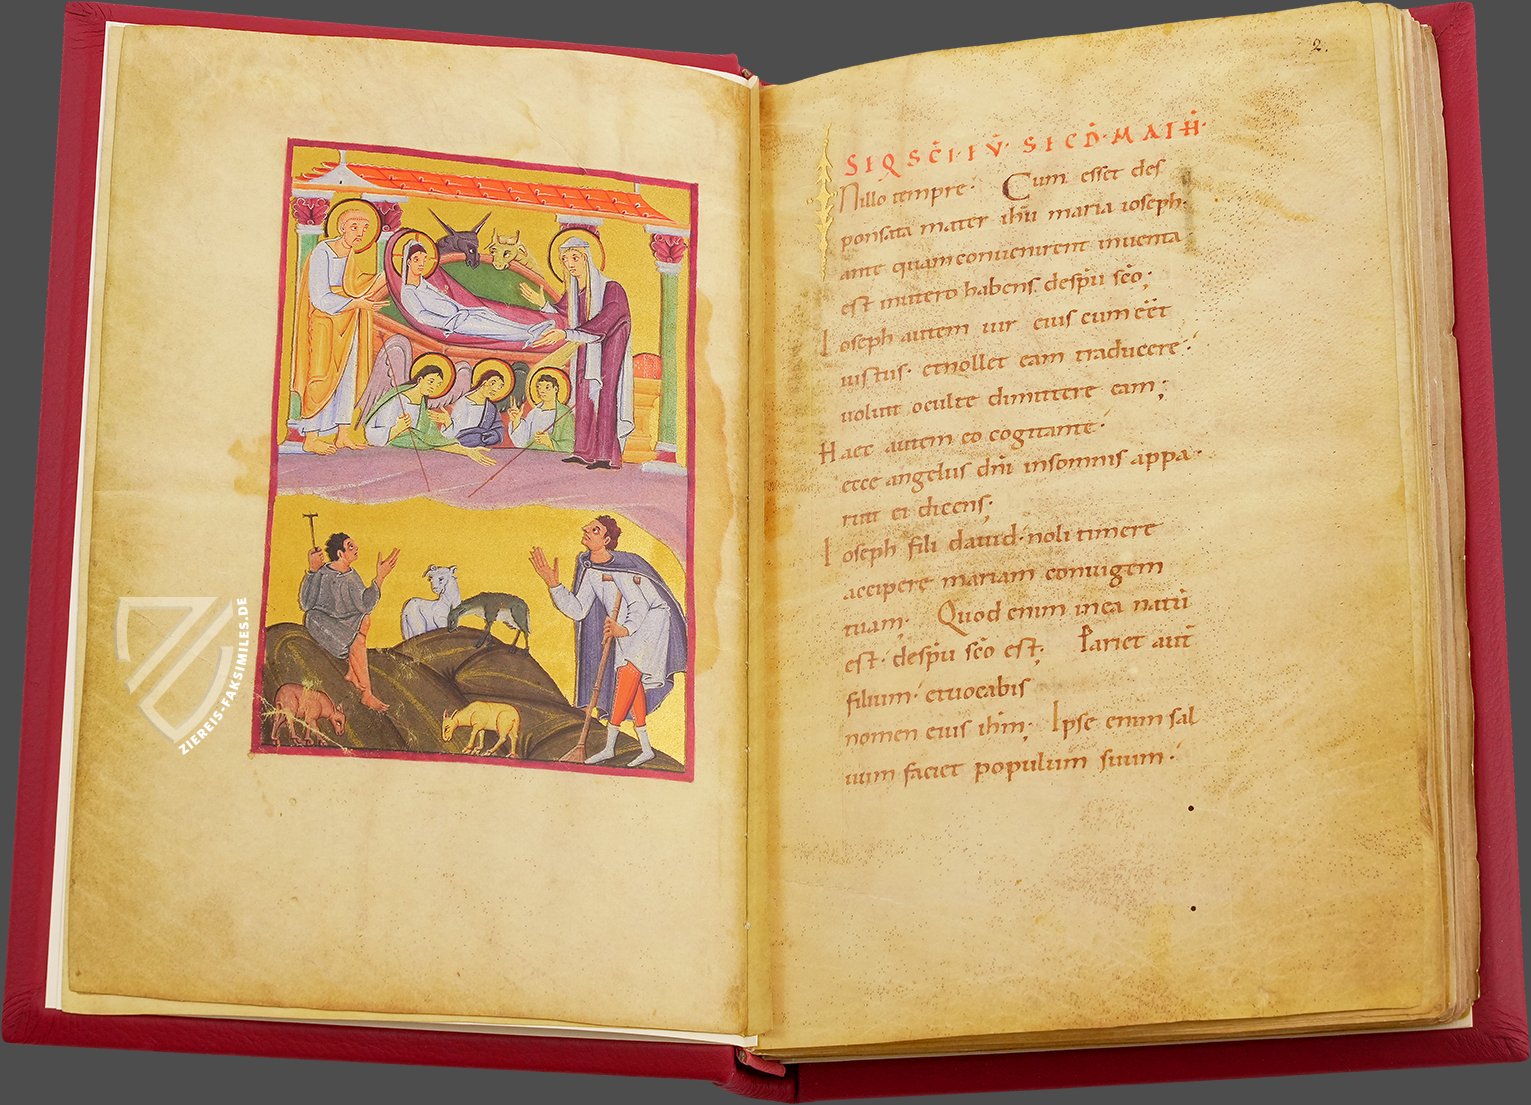 ZIEREIS-FAKSIMILES.DE
2.
SIQSC̄I·IV̄·SICD̄·MATH̄·
Nillo tempre· Cum esset des
ponsata mater ihū maria ioseph·
ante quam conuenirent inuenta
est inutero habens despū sc̄o;
Ioseph autem uir eius cum eēt
iustus· etnollet eam traducere·
uoluit oculte dimittere eam;
Haec autem eo cogitante·
ecce angelus dn̄i insomnis appa
ruit ei dicens;
Ioseph fili dauid· noli timere
accipere mariam coniugem
tuam; Quod enim inea natū
est· despū sc̄o est; Pariet aut̄
filium· etuocabis
nomen eius ihm̄; Ipse enim sal
uum faciet populum suum·